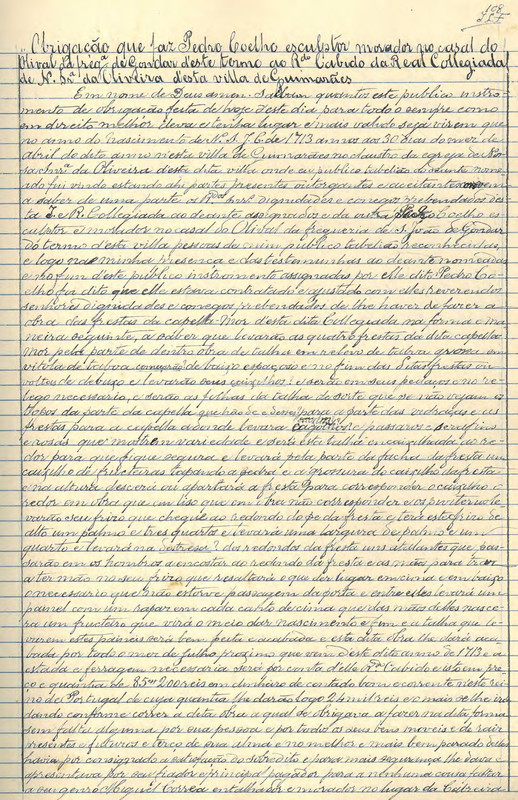 108
"Obrigação que faz Pedro Coelho esculptor morador no casal do
Olival da freg.ª de Gondar d'este termo ao R.do Cabido da Real Collegiada
de N. Sr.ª da Oliveira d'esta villa de Guimarães
Em nome de Deus amen. Saibam quantos este publico instru-
mento de obrigação feita de hoje d'este dia para todo o sempre como
em direito melhor lugar e mais valido seja virem que
no anno do nascimento de N. S. J. C. de 1713 annos aos 30 dias do mez de
abril do dito anno n'esta villa de Guimarães no claustro da egreja de Nos-
sa Senhr.ª da Oliveira d'esta dita villa onde eu publico tabelião ao deante nome-
ado fui vindo estando ahi partes presentes outorgantes e acceitantes convem
a saber de uma parte os Rdos dignidades e conegos prebendados des-
ta I. e R. Collegiada ao deante assignados e da outra Pedro Coelho es-
culptor e morador no casal do Olival da freguezia de S. João de Gondar
do termo d'esta villa pessoas de mim publico tabelião reconhecidas,
e logo na minha presença e das testemunhas ao deante nomeadas
e no fim d'este publico instrumento assignadas por elle dito Pedro Co-
elho foi dito que elle estava contratado e ajustado com elles reverendos
senhores Dignidades e conegos prebendados de lhe haver de fazer a
obra das frestas da capella-mor d'esta dita Collegiada na forma e ma-
neira seguinte, a saber que levarão as quatro frestas da dita capella-
mor pela parte de dentro obra de talha em relevo de talha grossa em
de talha de baixo espaçoso e no fim das ditas frestas em
voltas de debuxo e levarão seus e serão em seus pedaços no re-
levo necessario, e serão as folhas da talha de sorte que se não vejam os
topos da parte da capella que hão de e para a parte das vidraças e as
frestas para a capella aonde levara e passaros e serafins
e rosas que mostrem variedade e será esta talha encaixilhada ao re-
dor para que fique segura e levará pela parte da facha da fresta um
caixilho de fructuras tapando a pedra e a grossura do caixilho da fresta
e na altura descerá ou apartará a fresta para corresponder o caixilho o
redor em obra que em liso que em obra não corresponder e os
varão seu friso que chegue ao redondo do pé da fresta e terá esta friso de
alto um palmo e tres quartos e levará uma largura de palmo e um
quarto e levará na dos redondos da fresta uns atudantes que pas-
sarão em os hombros a encostar ao redondo da fresta e as mãos, para
a ter mão no seu friso que resultará e que der lugar em cima e em baixo
o necessario que não estorve passagem da porta e entre elles levará um
painel com um rapaz em cada canto de cima que das mãos d'elles nasce-
rá um fructeiro que virá o meio das nascimento e fim e a talha que le-
varem estes paineis será bem feita e acabada e esta dita obra lhe dará aca-
bada por todo o mez de julho proximo que vem d'este dito anno de 1713 e a
estada e ferragem necessaria será por conta d'elle R.do Cabido e isto em pre-
ço e quantia de 85m200 reis em dinheiro de contado bom e corrente neste rei-
no de Portugal de cuja quantia lhe darão logo 24 mil reis e o mais se lhe irá
dando conforme correr a dita obra a qual se obrigava a fazer na dita forma
sem falta alguma por sua pessoa e por todos os seus bens moveis e de raiz
presentes e futuros e terço de sua alma e no melhor e mais bem parado d'elles
havia por consignado a satisfação do sobredito e para mais segurança lhe dava e
apresentava por seu fiador e principal pagador para a nenhuma cousa faltar
a seu genro Miguel Corrêa entalhador e morador no lugar da